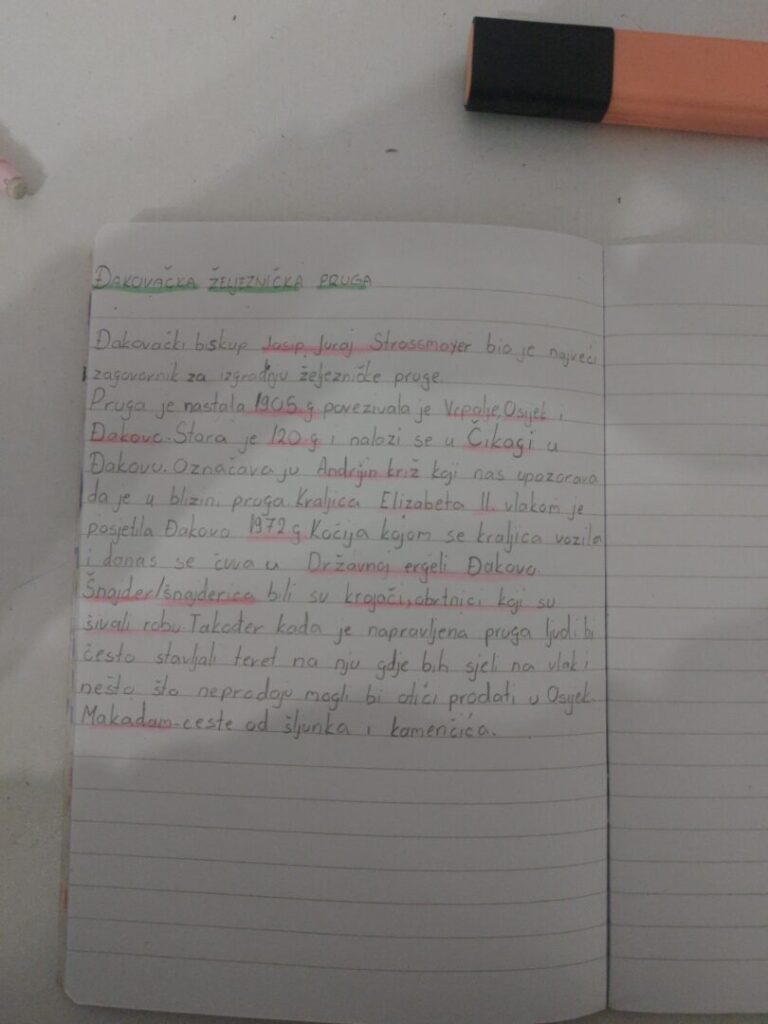 ĐAKOVAČKA ŽELJEZNIČKA PRUGA
Đakovački biskup Josip Juraj Strossmayer bio je najveći
zagovornik za izgradnju željezničke pruge.
Pruga je nastala 1905.g povezivala je Vrpolje, Osijek i
Đakovo. Stara je 120 g i nalazi se u Čikagi u
Đakovu. Označava ju Andrijin križ koji nas upozorava
da je u blizini pruga. Kraljica Elizabeta II. vlakom je
posjetila Đakovo 1972 g. Kočija kojom se kraljica vozila
i danas se čuva u Državnoj ergeli Đakovo.
Šnajder/šnajderica bili su krojači, obrtnici koji su
šivali robu. Također kada je napravljena pruga ljudi bi
često stavljali teret na nju gdje bih sjeli na vlak i
nešto što neprodaju mogli bi otići prodati u Osijek.
Makadam-ceste od šljunka i kamenčića.